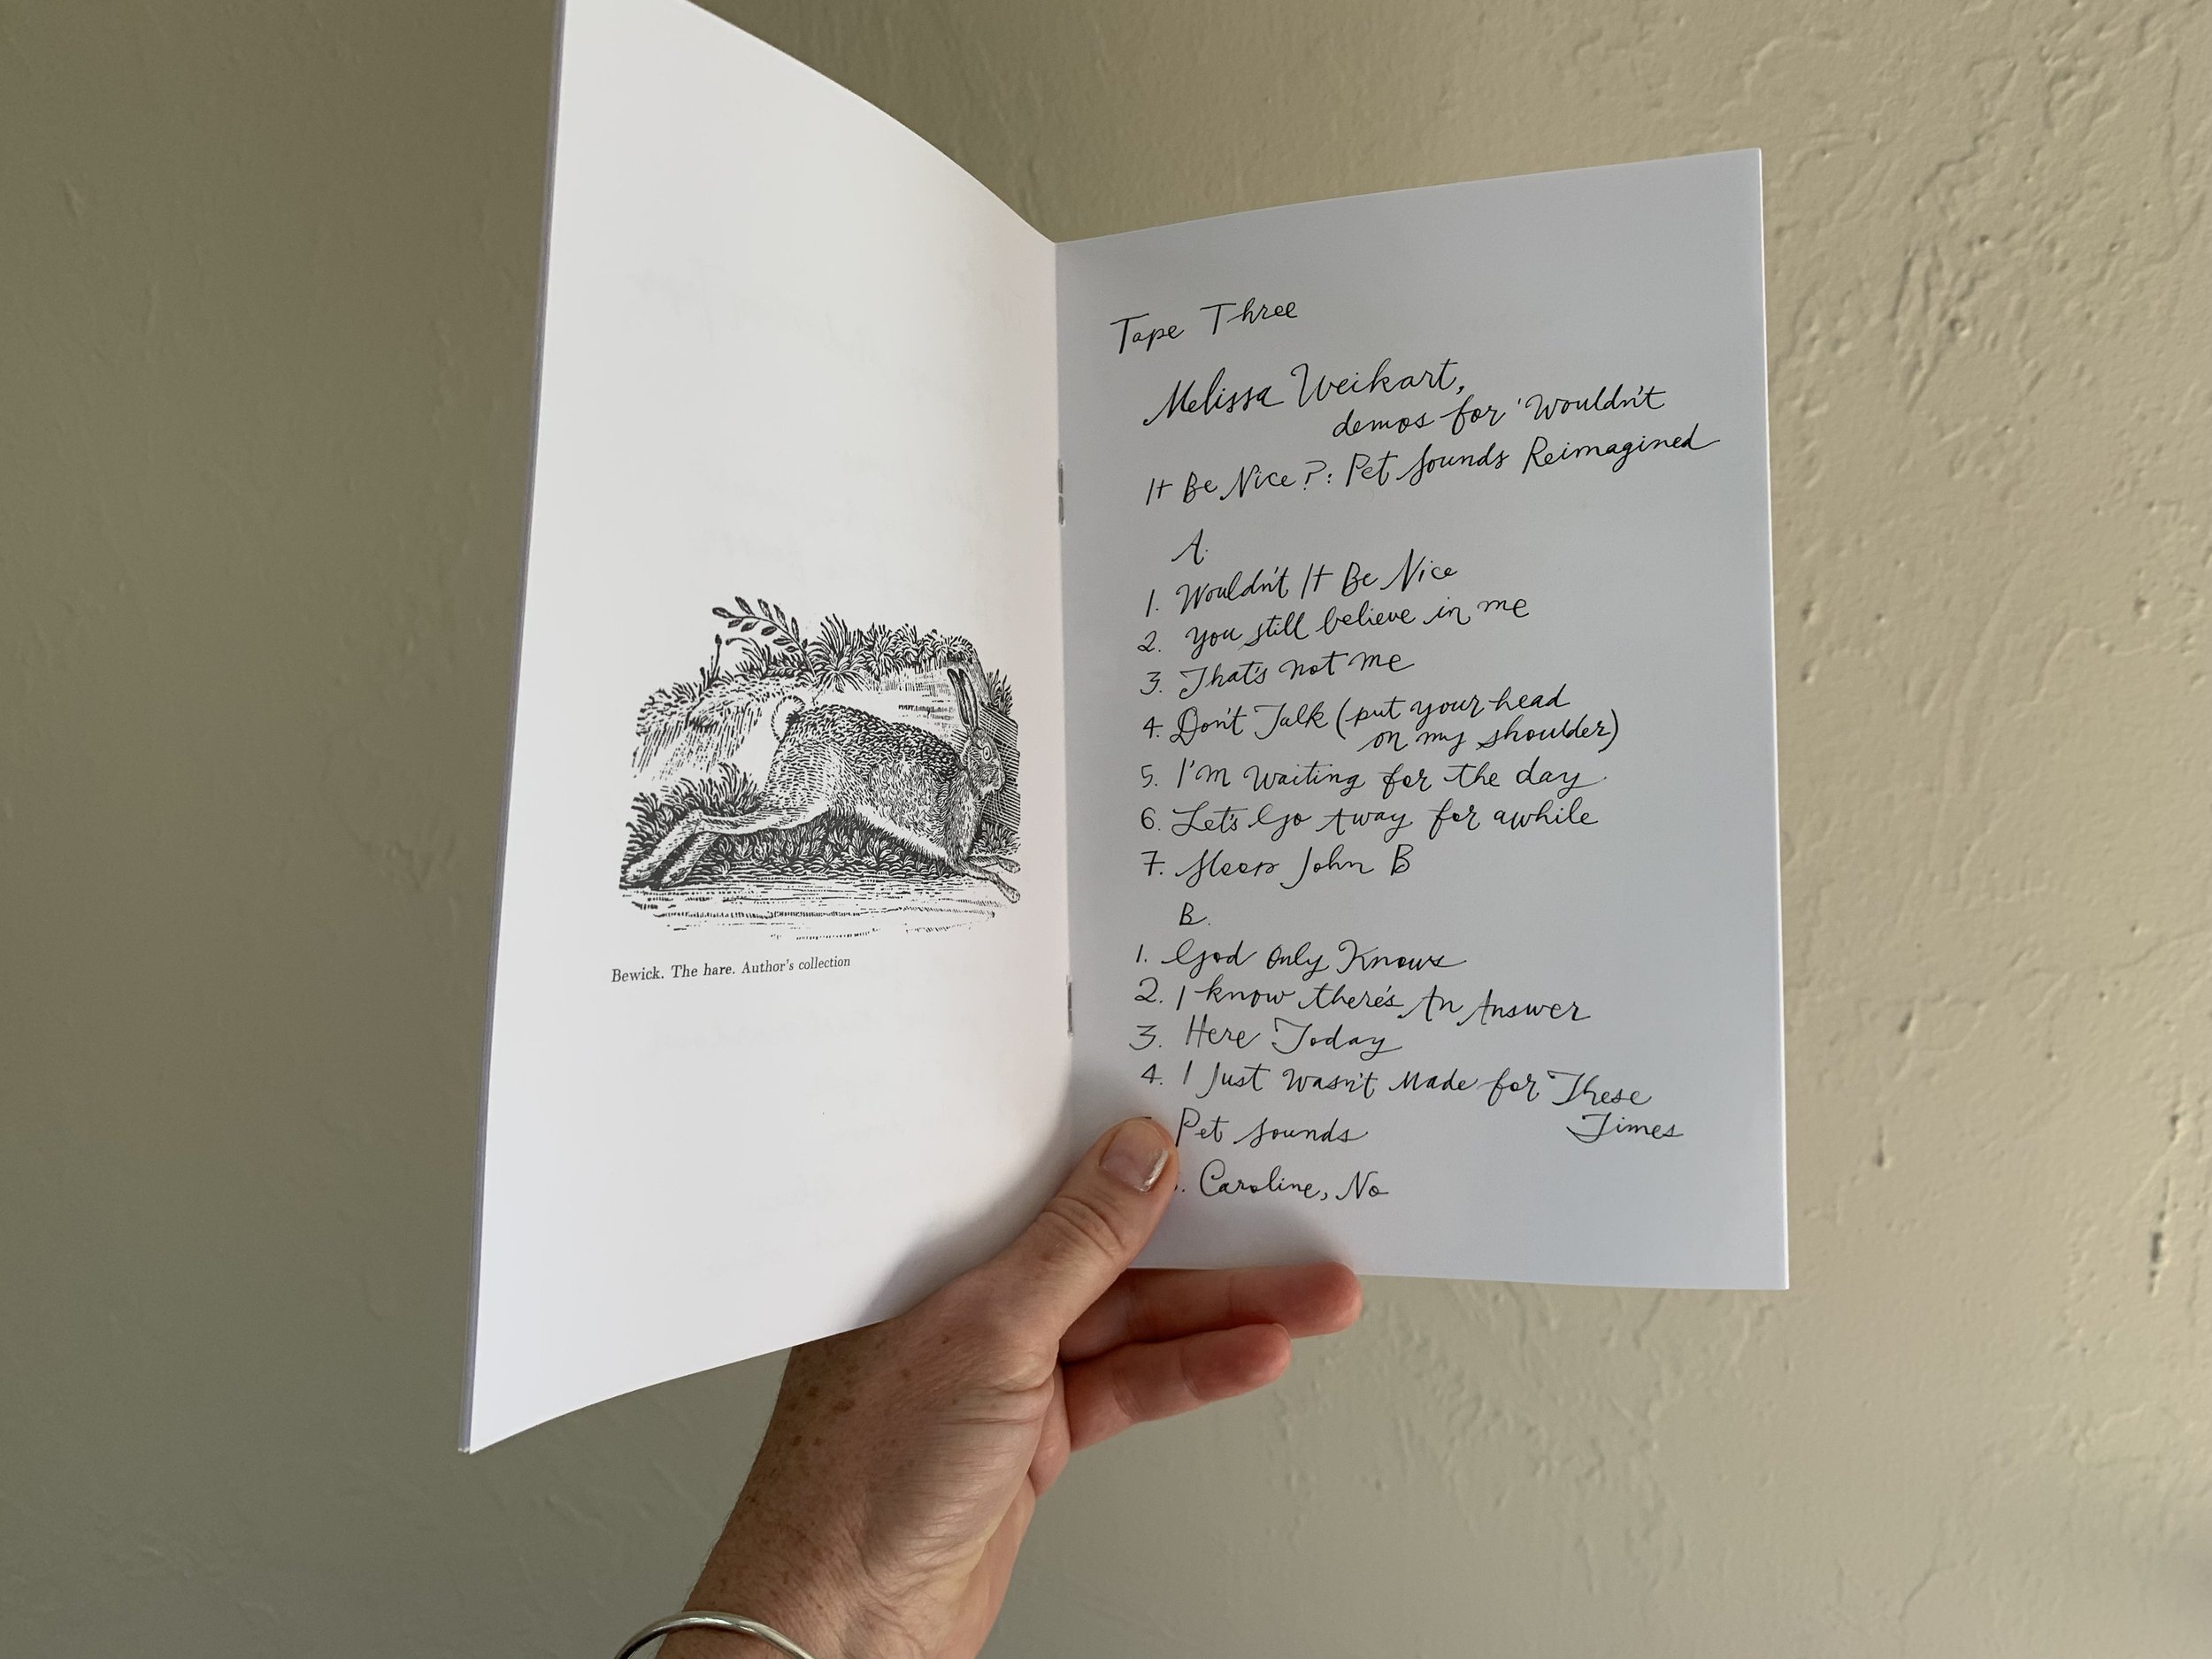 Bewick. The hare. Author's collection
Tape Three
Melissa Weikart,
demos for 'Wouldn't
It Be Nice?: Pet Sounds Reimagined
A.
1. Wouldn't It Be Nice
2. you still believe in me
3. That's not me
4. Don't Talk (put your head
on my shoulder)
5. I'm waiting for the day
6. Let's Go Away for awhile
7. Sloop John B
B.
1. God Only Knows
2. I know there's An Answer
3. Here Today
4. I Just Wasn't Made for These
Times
Pet Sounds
. Caroline, No